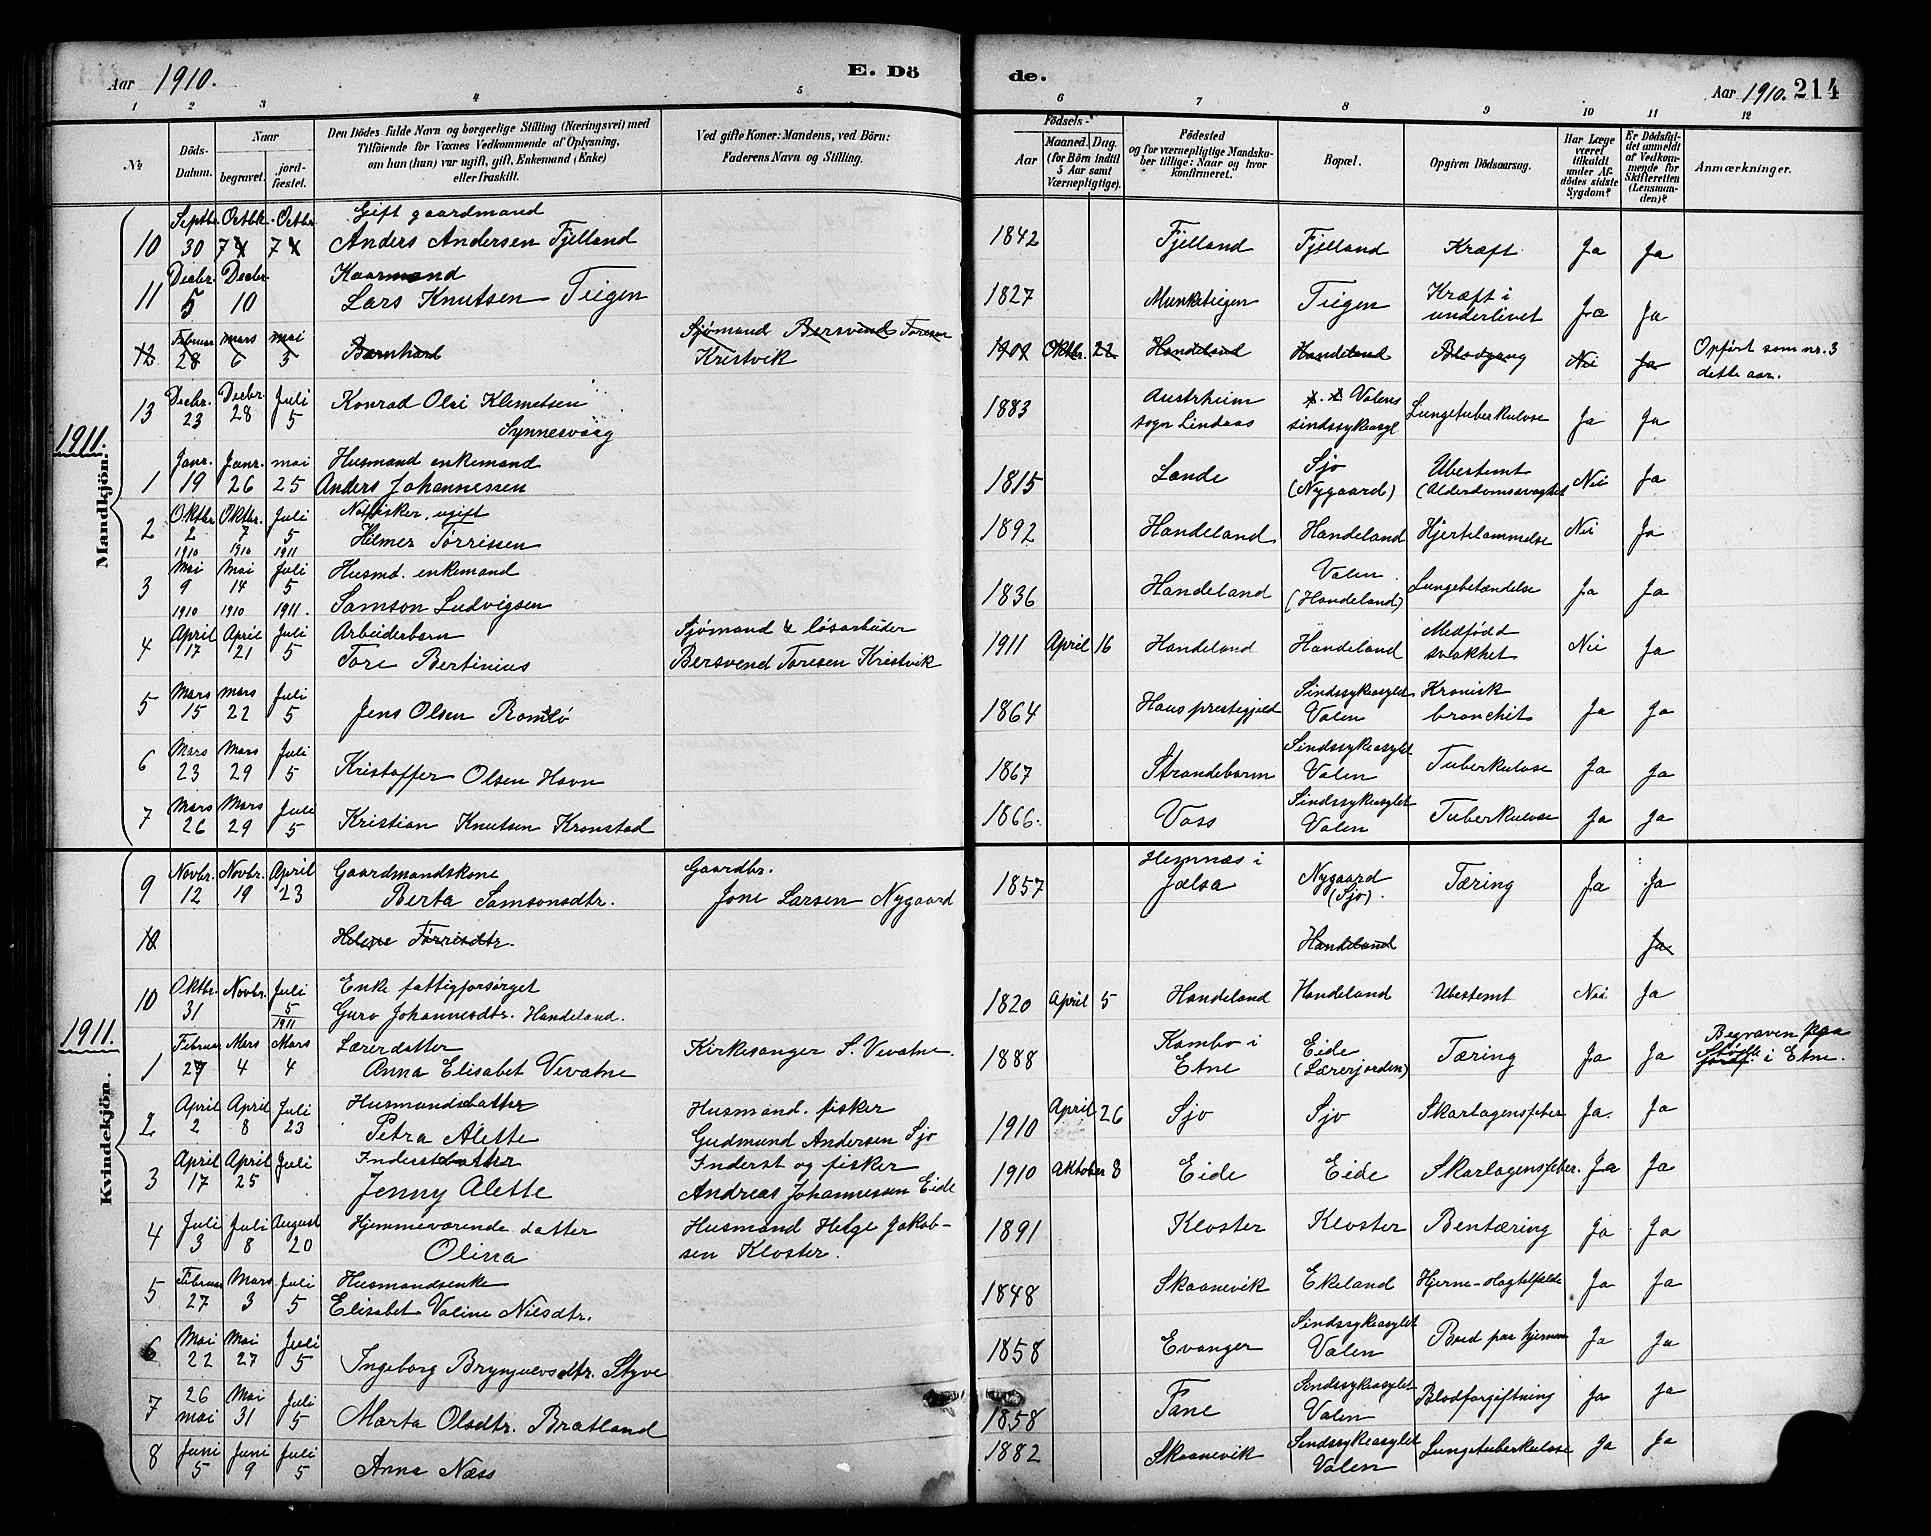 Aar 1910. E. Dö de. Aar 1910. 214
1 2 3 4 5 6 7 8 9 10 11 12
№ Döds-Datum. Naar begravet. jordfæstet. Den Dödes fulde Navn og borgerlige Stilling (Næringsvei) med Tilföiende for Voxnes Vedkommende af Oplysning, om han (hun) var ugift, gift, Enkemand (Enke) eller fraskilt. Ved gifte Koner: Mandens, ved Börn: Faderens Navn og Stilling. Födsels- Aar Maaned. Dag. (for Börn indtil 5 Aar samt Værnepligtige). Födested og for værnepligtige Mandskaber tillige: Naar og hvor konfirmeret. Bopæl. Opgiven Dödsaarsag. Har Læge været tilkaldt under Afdödes sidste Sygdom? Er Dödsfaldet anmeldt af Vedkommende for Skifteretten (Lensmanden)? Anmærkninger.
Mandkjön.
10 Septbr. 30 Octbr. 7 Octbr. 7 Gift gaardmand Anders Andersen Fjelland 1842 Fjelland Fjelland Kræft Ja Ja
11 Decbr. 5 Decbr. 10 Kaarmand Lars Knutsen Teigen 1827 Munketeigen Teigen Kræft i underlivet Ja Ja
12 Februar 28 mars 6 mai 3 Barnhard Sjömand Bersvend Toresen Kristvik 1909 Oktbr. 22 Handeland Handeland Blodgang Nei Ja Opført som nr. 3 dette aar.
13 Decbr. 23 Decbr. 28 Juli 5 Konrad Olai Klemetsen Synnesvaag 1883 Austrheim sogn Lindaas Valens sindssykeasyl Lungetuberkulose Ja Ja
1911.
1 Janr. 19 Janr. 26 mai 25 Husmand enkemand Anders Johannessen 1815 Lande Sjo (Nygaard) Ubestemt (Alderdomssvaghet Nei Ja
2 Oktbr. 2 1910 Oktbr. 7 1910 Juli 5 1911 Notfisker, ugift Helmer Tørrissen 1892 Handeland Handeland Hjertelammelse Nei Ja
3 Mai 9 1910 Mai 14 1910 Juli 5 1911. Husmd. enkemand Samson Ludvigsen 1836 Handeland Valen (Handeland) Lungebetændelse Ja Ja
4 April 17 April 21 Juli 5 Arbeiderbarn Tore Bertinius Sjømand & løsarbeider Bersvend Toresen Kristvik 1911 April 16 Handeland Handeland Medfødd svakhet Nei Ja
5 Mars 15 mars 22 Juli 5 Jens Olsen Romslo 1864 Haus prestegjeld Sindssykeasylet Valen Kronisk bronchit Ja Ja
6 Mars 23 Mars 29 Juli 5 Kristoffer Olsen Havn 1867 Strandebarm Sindssykeasylet Valen Tuberkulose Ja Ja
7 Mars 26 Mars 29 Juli 5 Kristian Knutsen Kronstad 1866. Voss Sindssykeasylet Valen Tuberkulose Ja Ja
Kvindekjön.
9 Novbr. 12 Novbr. 19 April 23 Gaardmandskone Berta Samsonsdtr. Gaardbr. Jone Larsen Nygaard 1857 Hemnæs i Jælsa Nygaard (Sjo). Tæring Ja Ja
10 Helene Tørrisdtr. Handeland Ja
10 Oktbr. 31 Novbr. Juli 5 1911 Enke fattigforsørget Guro Johannesdtr. Handeland. 1820 April 5 Handeland Handeland Ubestemt Nei Ja
1911.
1 Februar 27 Mars 4 Mars 4 Lærerdatter Anna Elisabet Vevatne Kirkesanger S. Vevatne. 1888 Kambo i Etne Eide (Lærerjorden) Tæring Ja Ja Begraven paa Støle i Etne.
2 April 2 April 8 Juli 23 Husmandsdatter Petra Alette Husmand. fisker Gudmund Andersen Sjo 1910 April 26 Sjo Sjo Skarlagensfeber Ja. Ja
3 April 17 April 25 Juli Inderstdatter Jenny Alette Inderst og fisker Andreas Johannessen Eide 1910 Oktober 8 Eide Eide Skarlagensfeber. Ja Ja
4 Juli 3 Juli 8 August 20 Hjemmeværende datter Olina Husmand Helge Jakobsen Kloster. 1891 Kloster Kloster Bentæring Ja Ja
5 Februar 27 Mars 3 Juli 5 Husmandsenke Elisabet Valine Nilsdtr. 1848 Skaanevik Ekeland Hjerne-slagtilfælde Ja Ja
6 Mai 22 Mai 27 Juli 5 Ingeborg Brynjulvsdtr. Styve 1858 Evanger Sindssykeasylet Valen Brud paa hjernen Ja Ja
7 26 mai Mai 31 Juli 5 Marta Olsdtr. Brætland 1858 Fane Sindssykeasylet Valen Blodforgiftning Ja Ja
8 Juni 5 Juni 9 Juli 5 Anna Næss 1882 Skaanevik Sindssykeasylet Valen Lungetuberkulose Ja Ja